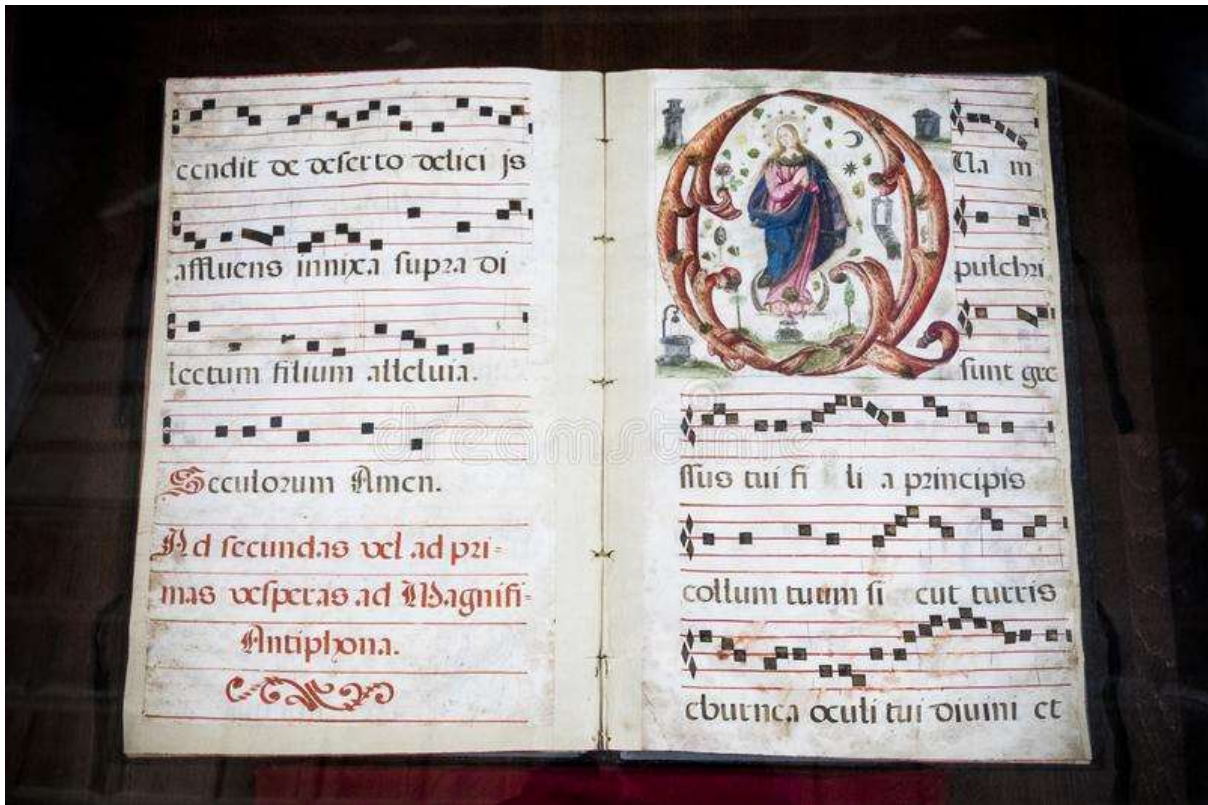 cendit de deserto delici js
affluens innixa supra di
lectum filium alleluia.
Seculorum Amen.
Ad secundas vel ad pri=
mas vesperas ad Magnifi=
Antiphona.
QUa m
pulchri
sunt gre
ssus tui fi li a principis
collum tuum si cut turris
eburnea oculi tui diuini et
dreamstime